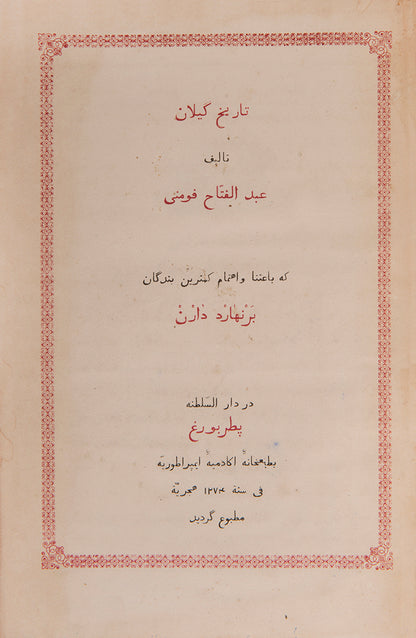 تاریخ گیلان
تالیف
عبد الفتاح فومنی
که باعتنا واهتمام کمترین بندگان
بَرْنهارْد دارْنْ
در دار السلطنه
پطربورغ
بطبعخانهٔ اکادمیهٔ ایمپراطوریّه
فی سنة ۱۲۷۴ هجریّة
مطبوع گردید